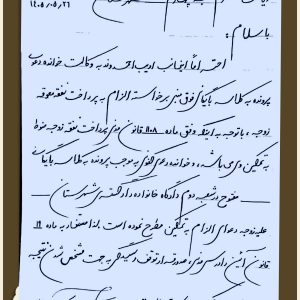 ۱۴۰۵,۰۵,۲۶
با سلام؛
احتراماً اینجانب ادیب احمدوند به وکالت خوانده دعوی
پرونده به کلاسه بایگانی فوق مبنی بر خواسته الزام به پرداخت نفقه معوقه
زوجه، با توجه به اینکه وفق ماده ۱۱۰۸ قانون مدنی پرداخت نفقه زوجه منوط
به تمکین وی می باشد، و خوانده دعوی الفوق به موجب پرونده به کلاسه بایگانی
مفتوح در شعبه دوم دادگاه خانواده دادگستری شهرستان
علیه زوجه دعوای الزام به تمکین مطرح نموده است. لذا مستفاد به ماده ۱۹
قانون آیین دادرسی مدنی، صدور قرار توقف رسیدگی به جهت مشخص شدن نتیجه